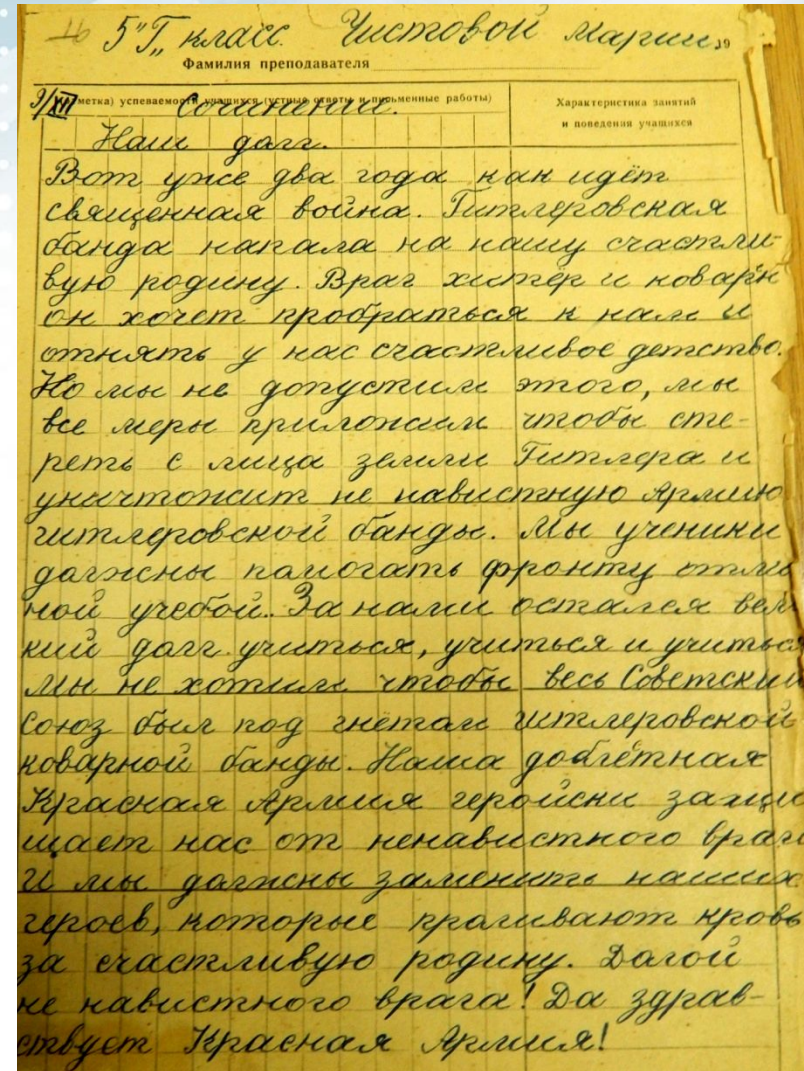 5 "Г" класс. Чистовой Марии. 19
Фамилия преподавателя
9/XII метка) успеваемости учащихся (устные ответы и письменные работы) Характеристика занятий
и поведения учащихся
Сочинение.
Наш далг.
Вот уже два года как идёт
священная война. Гитлеровская
банда напала на нашу счастли-
вую родину. Враг хитёр и коварн
он хочет пробраться к нам и
отнять у нас счастливое детство.
Но мы не допустим этого, мы
все меры приложим чтобы сте-
реть с лица земли Гитлера и
уничтожит не навистную Армию
гитлеровской банды. Мы ученики
должны памогать фронту отли
ной учебой. За нами остался вели
кий далг учиться, учиться и учиться
Мы не хотим чтобы весь Советский
Союз был под гнётам гитлеровской
коварной банды. Наша доблётная
Красная Армия геройски защи
щает нас от ненавистного врага
И мы должны заменить наших
героев, которые праливают кровь
за счастливую родину. Далой
не навистного врага! Да здрав-
ствует Красная Армия!